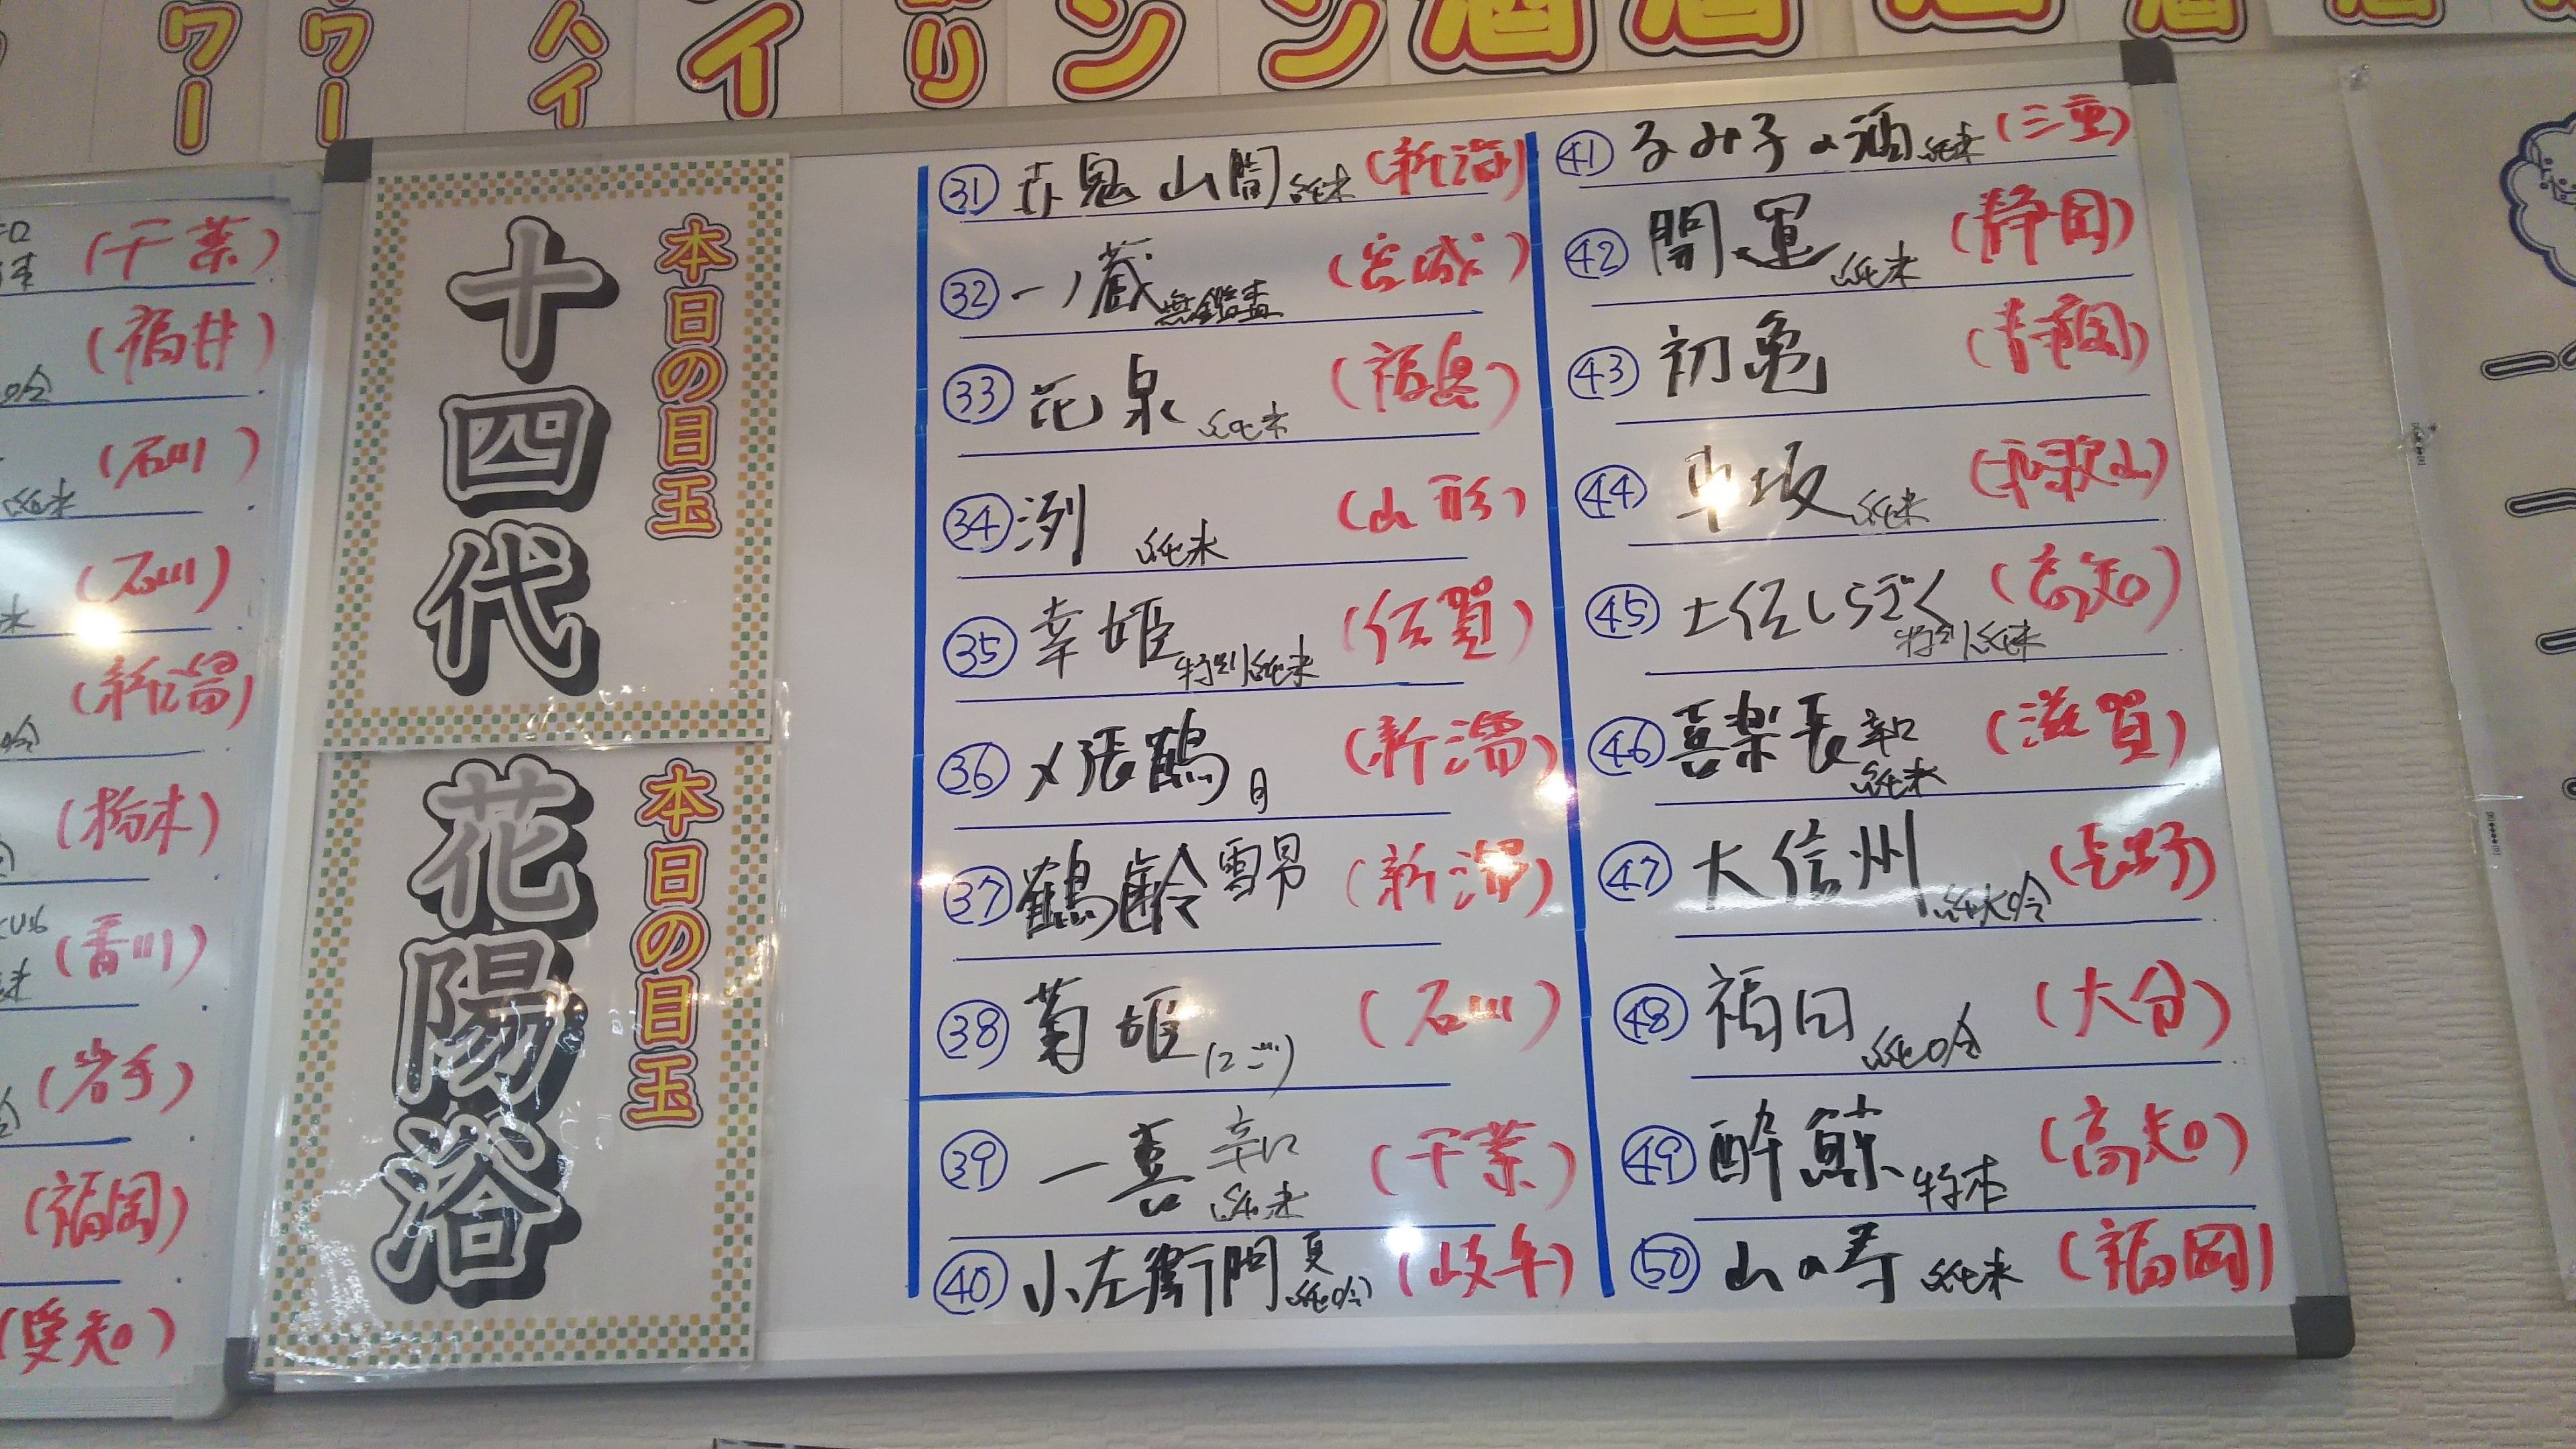 ワー
ワー
ハイ
イ
リ
ン
ン
酒
酒
酒
酒
(千葉)
(福井)
(石川)
純米
(石川)
(新潟)
(栃木)
(香川)
(岩手)
(福岡)
(愛知)
本日の目玉
十四代
本日の目玉
花陽浴
㉛ 赤鬼山間 純米 (新潟)
㉜ 一ノ蔵 無鑑査 (宮城)
㉝ 花泉 純米 (福島)
㉞ 洌 純米 (山形)
㉟ 幸姫 特別純米 (佐賀)
㊱ 〆張鶴 月 (新潟)
㊲ 鶴齢 雪男 (新潟)
㊳ 菊姫 (にごり) (石川)
㊴ 一喜 辛口 純米 (千葉)
㊵ 小左衛門 夏 純吟 (岐阜)
㊶ るみ子の酒 純米 (三重)
㊷ 開運 純米 (静岡)
㊸ 初亀 (静岡)
㊹ 車坂 純米 (和歌山)
㊺ 土佐しらぎく 特別純米 (高知)
㊻ 喜楽長 辛口 純米 (滋賀)
㊼ 大信州 純大吟 (長野)
㊽ 福田 純吟 (大分)
㊾ 酔鯨 特本 (高知)
㊿ 山の寿 純米 (福岡)